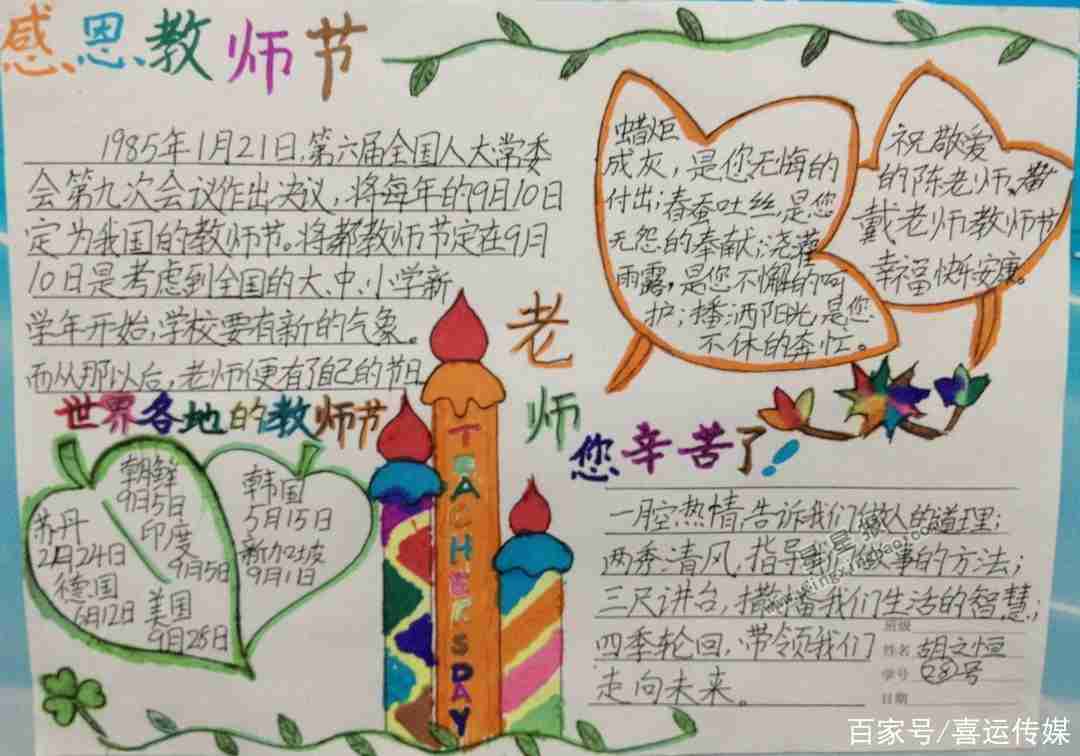 感恩教师节
1985年1月21日,第六届全国人大常委
会第九次会议作出决议,将每年的9月10日
定为我国的教师节。将都教师节定在9月
10日是考虑到全国的大、中、小学新
学年开始,学校要有新的气象。
而从那以后,老师便有了自己的节日
蜡炬
成灰,是您无悔的
付出;春蚕吐丝,是您
无怨的奉献;浇灌
雨露,是您不懈的呵
护;播洒阳光,是您
不休的奔忙。
祝敬爱
的陈老师、
戴老师教师节
幸福快乐安康。
老
师
您辛苦了!
世界各地的教师节
朝鲜
9月5日
苏丹
2月24日
印度
9月5日
德国
6月12日
美国
9月28日
韩国
5月15日
新加坡
9月1日
TEACHERSDAY
一腔热情告诉我们做人的道理;
两季清风,指导我们做事的方法;
三尺讲台,播我们生活的智慧;
四季轮回,带领我们
走向未来。
班级
姓名 胡之恒
学号 号
日期
百家号/喜运传媒